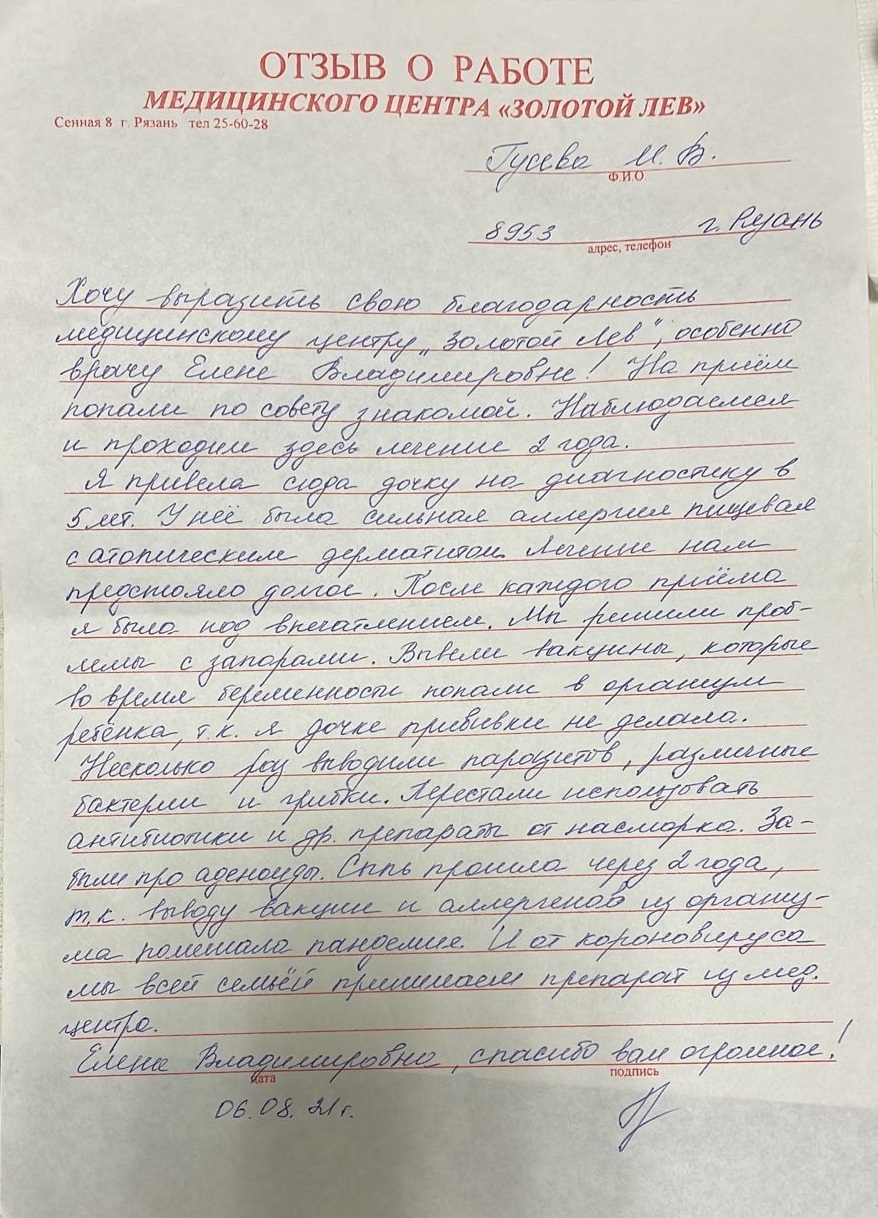 ОТЗЫВ О РАБОТЕ
МЕДИЦИНСКОГО ЦЕНТРА «ЗОЛОТОЙ ЛЕВ»
Сенная 8 г. Рязань тел 25-60-28
Гусева И. В.
Ф.И.О
8953 г. Рязань
адрес, телефон
Хочу выразить свою благодарность
медицинскому центру „Золотой Лев", особенно
врачу Елене Владимировне! На приём
попали по совету знакомой. Наблюдаемся
и проходим здесь лечение 2 года.
Я привела сюда дочку на диагностику в
5 лет. У неё была сильная аллергия пищевая
с атопическим дерматитом. Лечение нам
предстояло долгое. После каждого приёма
я была под впечатлением. Мы решили проб-
лемы с запорами. Вывели вакцины, которые
во время беременности попали в организм
ребёнка, т.к. я дочке прививки не делала.
Несколько раз выводили паразитов, различные
бактерии и грибки. Перестали использовать
антибиотики и др. препараты от насморка. За-
были про аденоиды. Сыпь прошла через 2 года,
т.к. выводу вакцин и аллергенов из организ-
ма помешала пандемия. И от короновируса
мы всей семьёй принимаем препарат из мед.
центра.
Елена Владимировна, спасибо вам огромное!
дата подпись
06.08.21г.